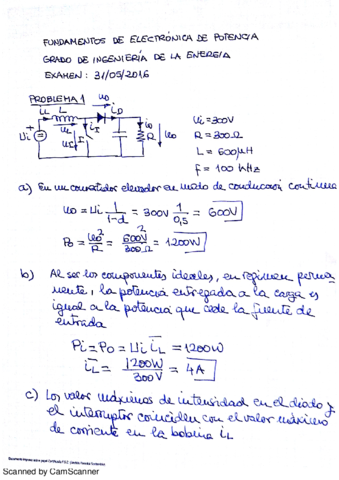 FUNDAMENTOS DE ELECTRÓNICA DE POTENCIA
GRADO DE INGENIERÍA DE LA ENERGIA
EXAMEN: 31/05/2016
PROBLEMA 1
iL L uD iD
uL iI io
Ui uI R uo
Ui=300V
R = 300Ω
L = 600μH
f = 100 kHz
a) En un convertidor elevador en modo de conducción continua
uo = Ui 1/(1-d) = 300V 1/0,5 = 600V
Po = uo²/R = 600V²/300Ω = 1200W
b) Al ser los componentes ideales, en régimen perma
nente, la potencia entregada a la carga es
igual a la potencia que cede la fuente de
entrada
Pi = Po = Ui iL = 1200W
iL = 1200W/300V = 4A
c) Los valores máximos de intensidad en el diodo y
el interruptor coinciden con el valor máximo
de corriente en la bobina iL
Scanned by CamScanner